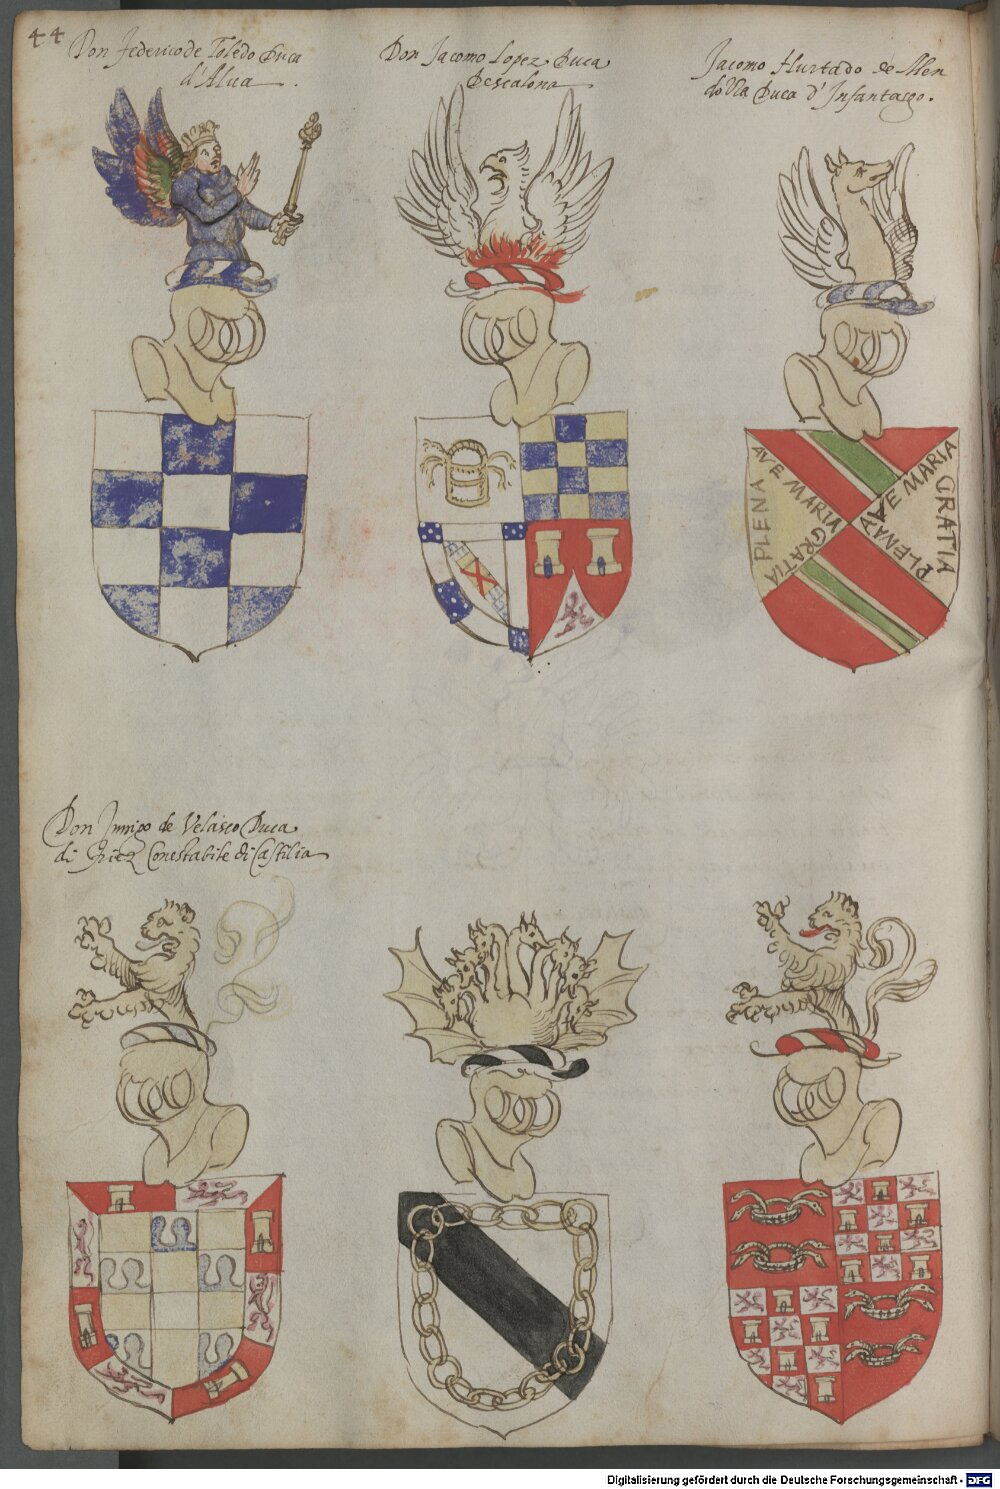 44
Don Federico de Toledo Duca
d'Alua
Don Jacomo Lopez Duca
Descalona
Jacomo Hurtado de Men
dozza Duca d'Infantasgo.
AVE MARIA GRATIA
PLENA
AVE MARIA GRATIA
PLENA
Don Innigo de Velasco Duca
di Conestabile di Castilia
Digitalisierung gefördert durch die Deutsche Forschungsgemeinschaft - DFG